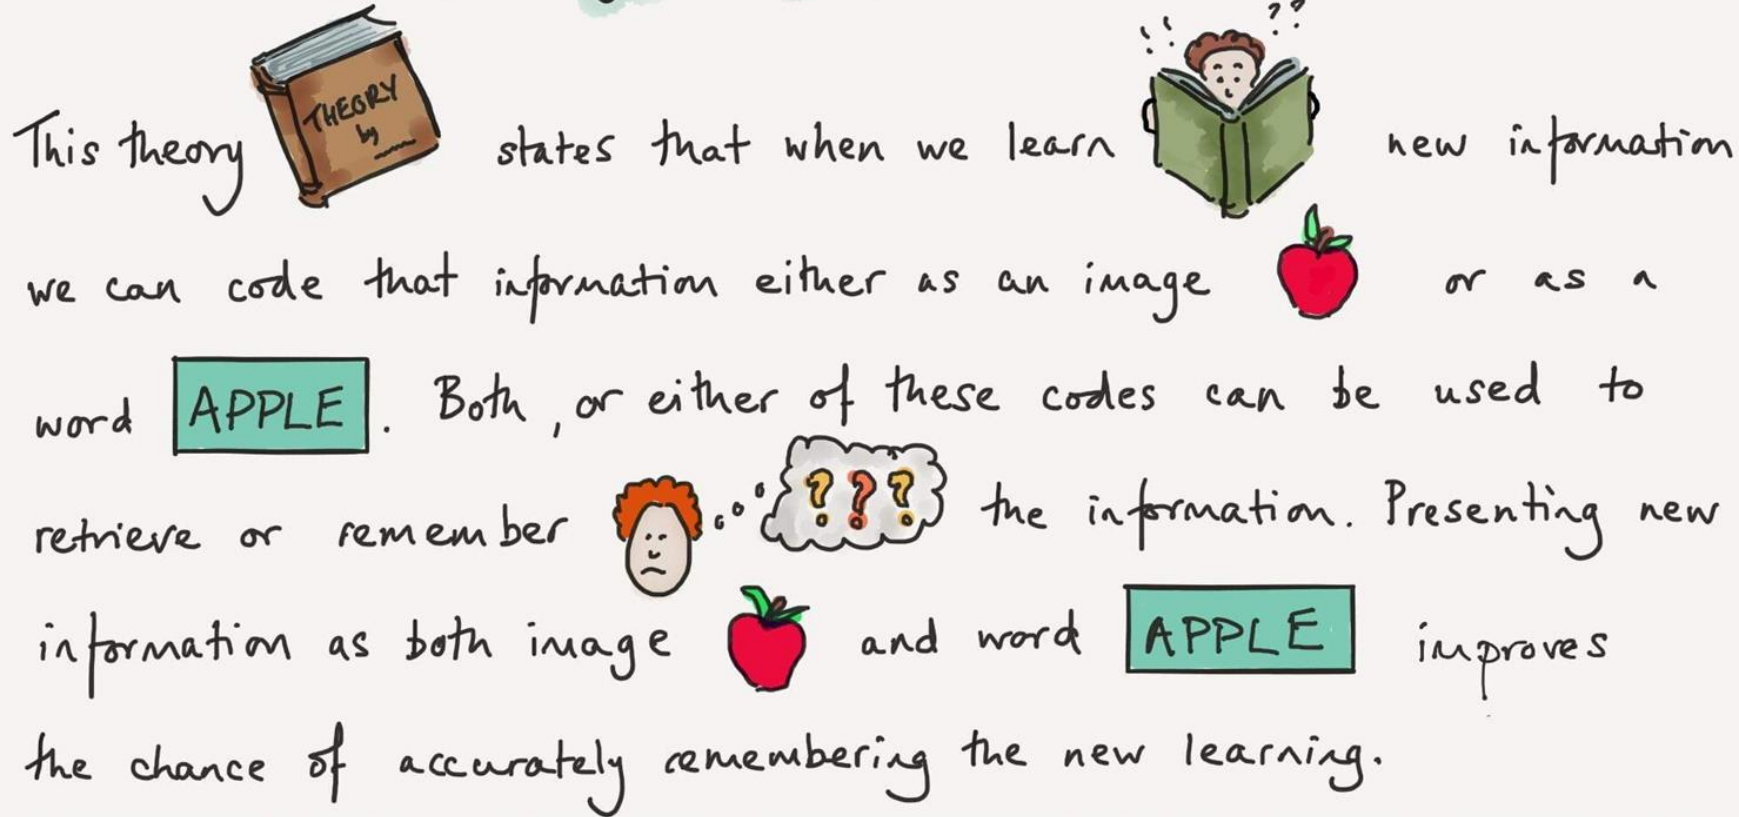 This theory THEORY by states that when we learn !! ?? new information
we can code that information either as an image or as a
word APPLE. Both, or either of these codes can be used to
retrieve or remember ??? the information. Presenting new
information as both image and word APPLE improves
the chance of accurately remembering the new learning.